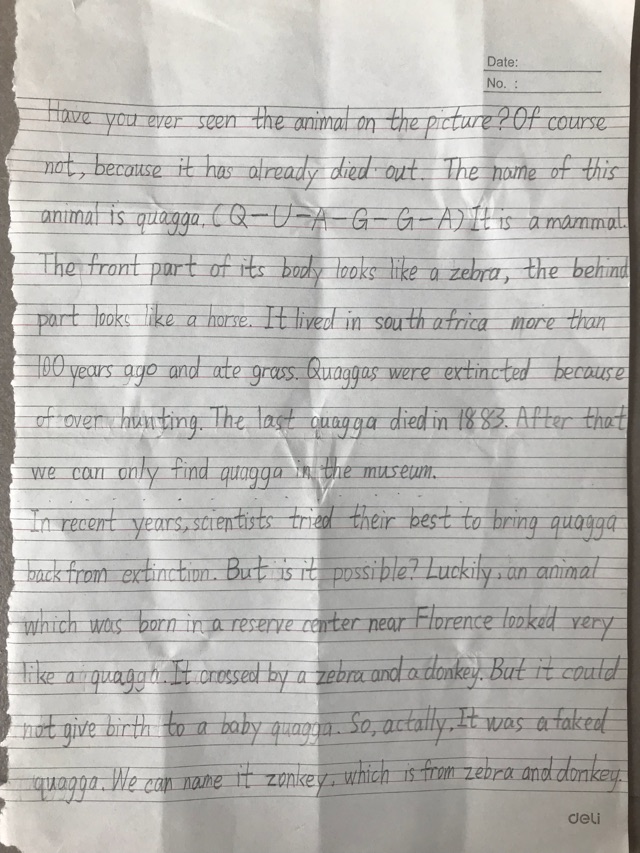 Date:
No. :
Have you ever seen the animal on the picture? Of course
not, because it has already died out. The name of this
animal is quagga. (Q-U-A-G-G-A) It is a mammal.
The front part of its body looks like a zebra, the behind
part looks like a horse. It lived in south africa more than
100 years ago and ate grass. Quaggas were extincted because
of over hunting. The last quagga died in 1883. After that
we can only find quagga in the museum.
In recent years, scientists tried their best to bring quagga
back from extinction. But is it possible? Luckily, an animal
which was born in a reserve center near Florence looked very
like a quagga. It crossed by a zebra and a donkey. But it could
not give birth to a baby quagga. So, actally, It was a faked
quagga. We can name it zonkey, which is from zebra and donkey.
deli